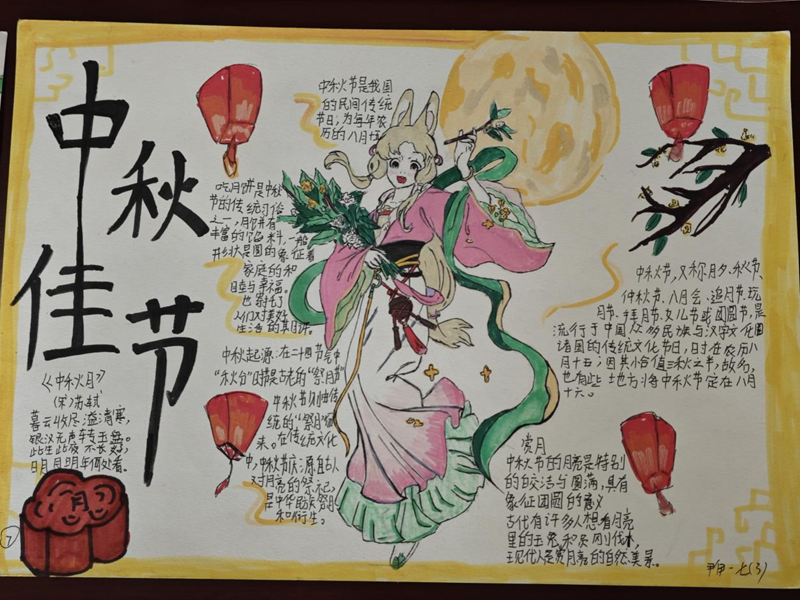 中秋佳节
中秋节是我国
的民间传统
节日,为每年农
历的八月十五
吃月饼是中秋
节的传统习俗
之一,月饼有
丰富的馅料,一般
形状是圆的象征着
家庭的和
睦与幸福。
也寄托了
人们对美好
生活的期盼。
中秋起源:在二十四节气中
“秋分”时是古老的“祭月节”
中秋节则由传
统的“祭月”而
来。在传统文化
中,中秋节庆源自古人
对月亮的祭祀,
是中华民族祭月
和衍生。
《中秋月》
(宋)苏轼
暮云收尽溢清寒,
银汉无声转玉盘。
此生此夜不长好,
明月明年何处看。
月
中秋节,又称月夕、秋节、
仲秋节、八月会、追月节、玩
月节、拜月节、女儿节或团圆节,是
流行于中国众多民族与汉字文化圈
诸国的传统文化节日,时在农历八
月十五;因其恰值三秋之半,故名,
也有些地方将中秋节定在八月
十六。
赏月
中秋节的月亮是特别
的皎洁与圆满,具有
象征团圆的意义
古代有许多人想看月亮
里的玉兔和吴刚伐木,
现代人是赏月亮的自然美景。
7
一七(3)